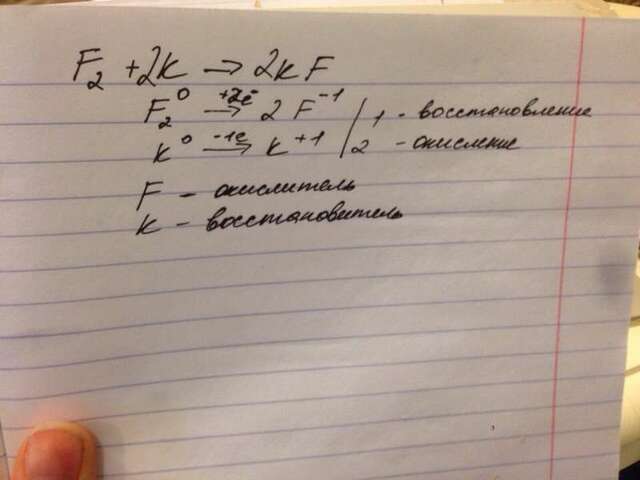 F₂ + 2K → 2KF
F₂⁰ +2ē→ 2F⁻¹ | 1 - восстановление
K⁰ -1e→ K⁺¹ | 2 - окисление
F - окислитель
K - восстановитель